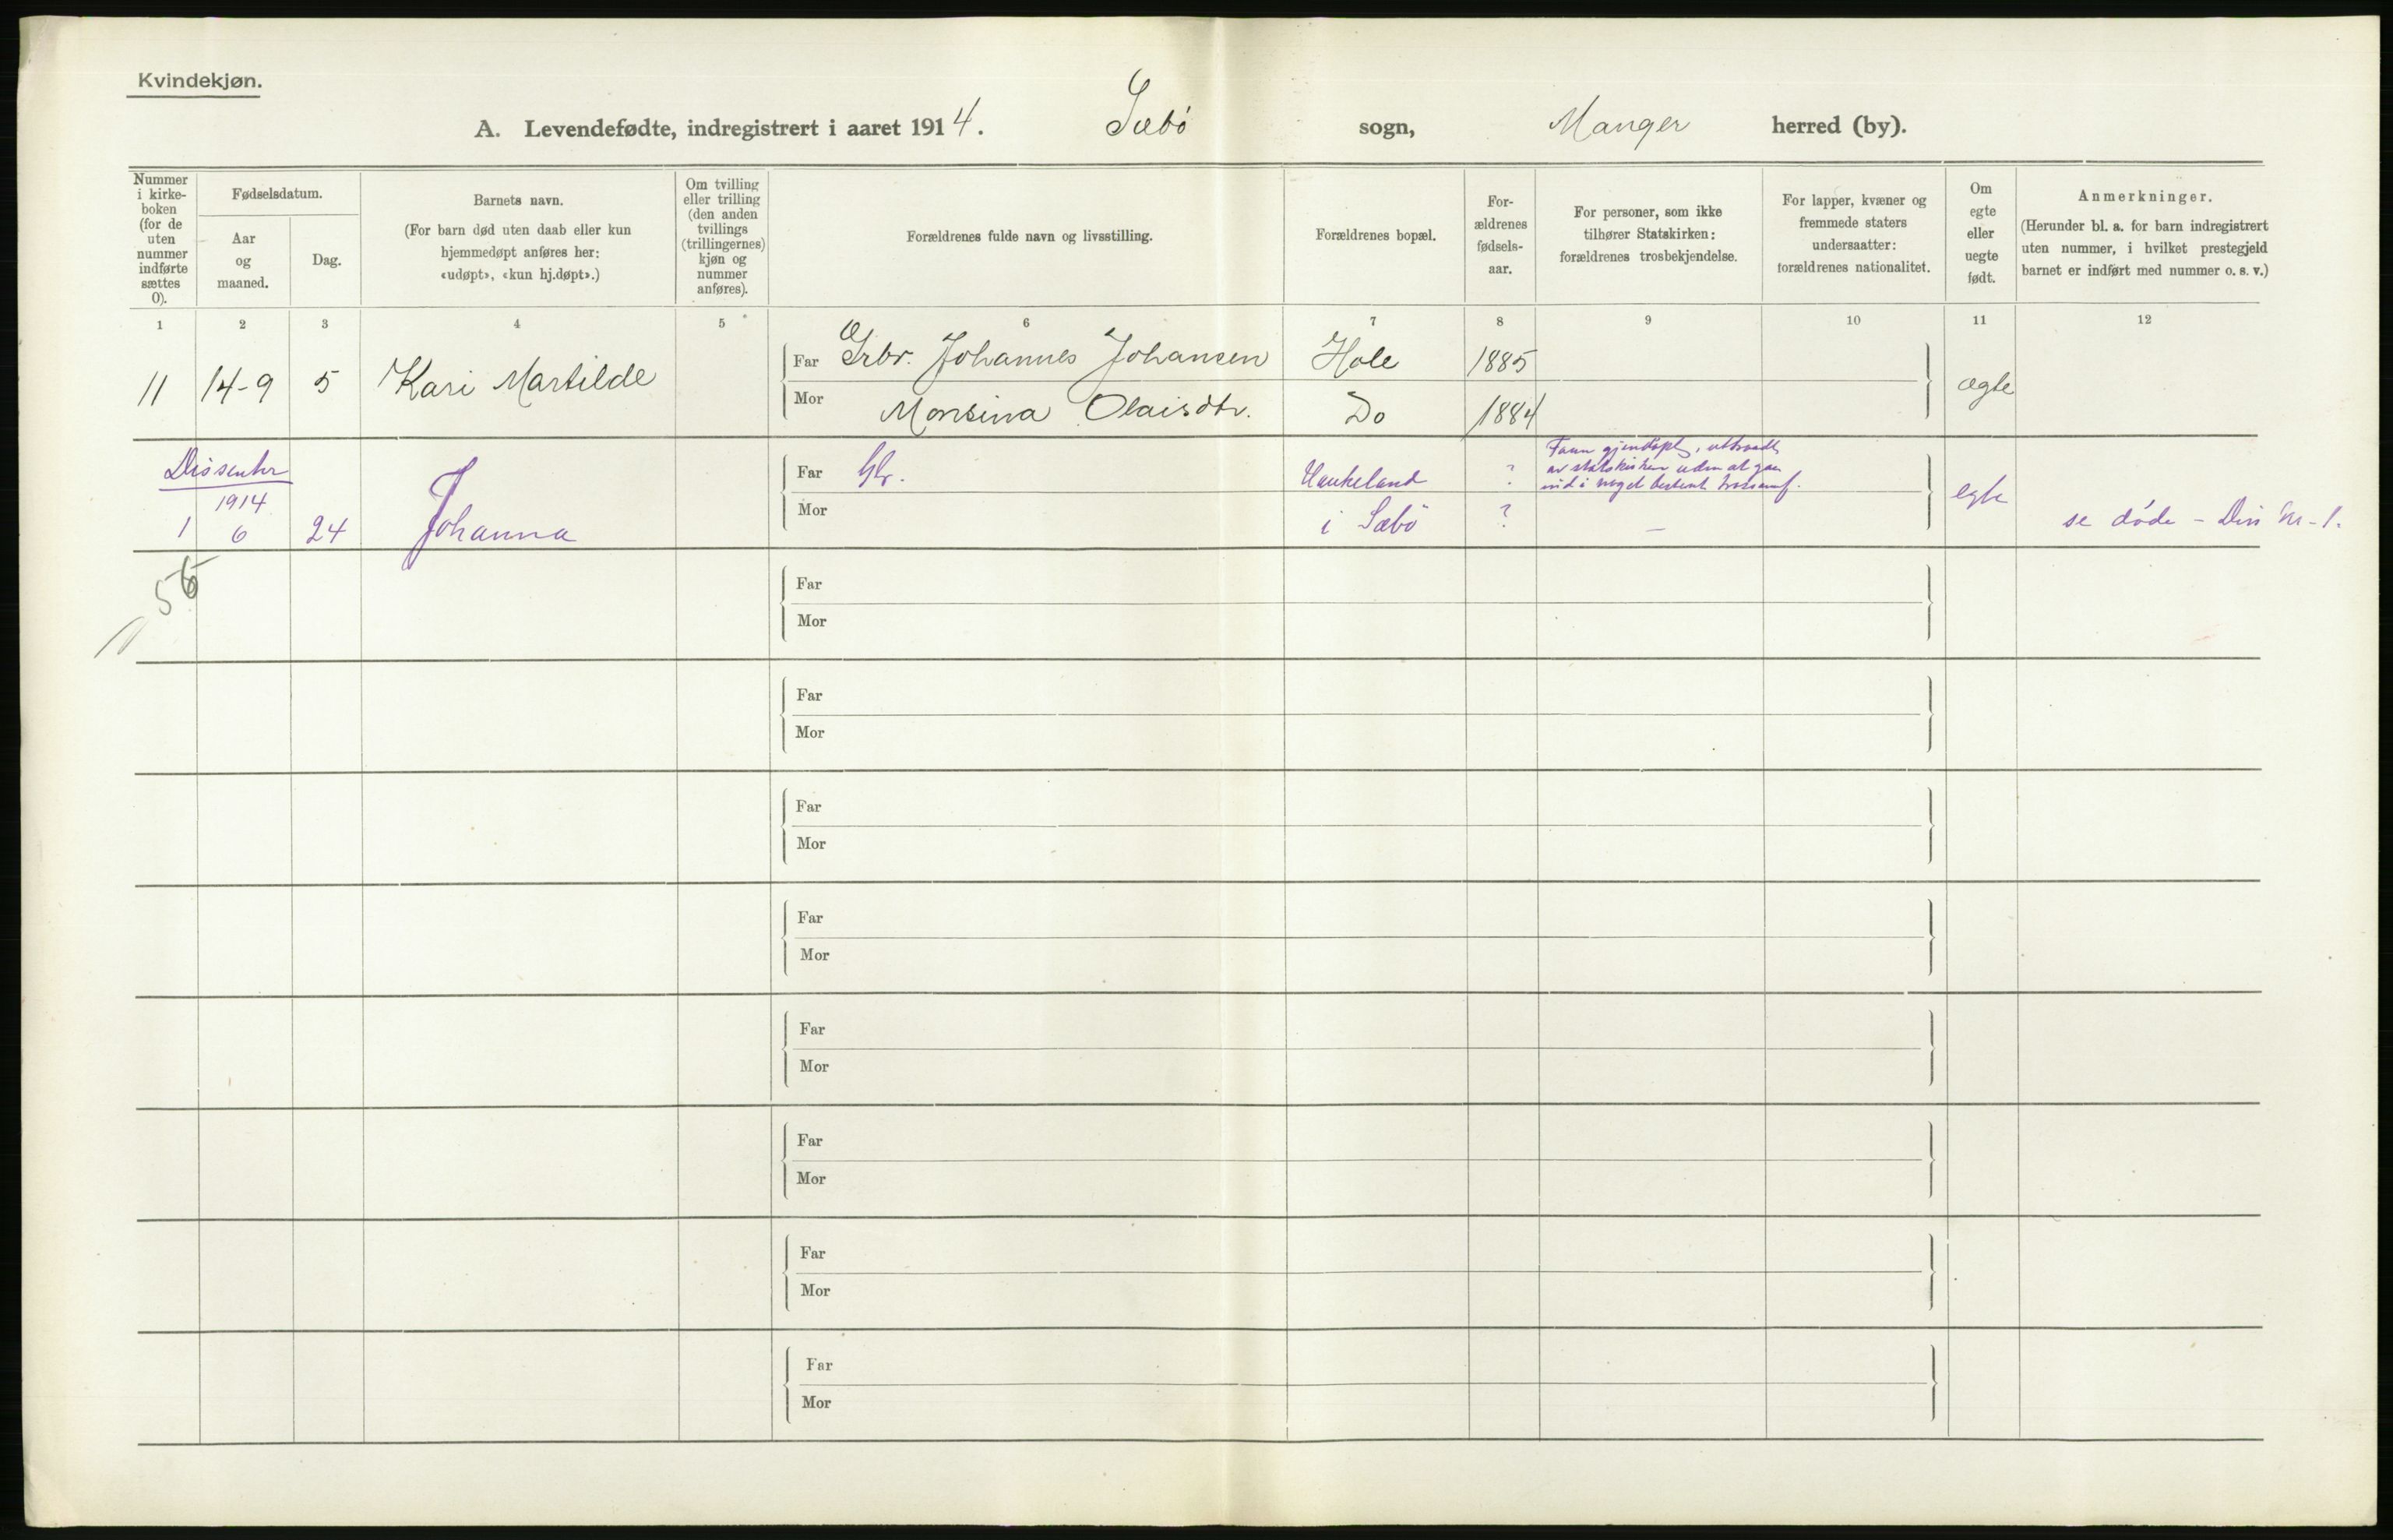 Kvindekjøn.
A. Levendefødte, indregistrert i aaret 1914. Sæbö sogn, Manger herred (by).
Nummer i kirke-boken (for de uten nummer indførte sættes 0).
Fødselsdatum.
Aar og maaned.
Dag.
Barnets navn.
(For barn død uten daab eller kun hjemmedøpt anføres her: «udøpt», «kun hj.døpt».)
Om tvilling eller trilling (den anden tvillings (trillingernes) kjøn og nummer anføres).
Forældrenes fulde navn og livsstilling.
Forældrenes bopæl.
For-ældrenes fødsels-aar.
For personer, som ikke tilhører Statskirken: forældrenes trosbekjendelse.
For lapper, kvæner og fremmede staters undersaatter: forældrenes nationalitet.
Om egte eller uegte født.
Anmerkninger.
(Herunder bl. a. for barn indregistrert uten nummer, i hvilket prestegjeld barnet er indført med nummer o. s. v.)
1 2 3 4 5 6 7 8 9 10 11 12
11 14-9 5 Kari Martilde
Far Grbr. Johannes Johansen Hole 1885
Mor Monsina Olaisdtr. Do 1884
ægte
Dissenter
1914
1 6 24 Johanna
Far Gbr. Haukeland ?
Mor i Sæbö ? —
egte
se døde - Diss Nr - 1.
55
Far
Mor
Far
Mor
Far
Mor
Far
Mor
Far
Mor
Far
Mor
Far
Mor
Far
Mor